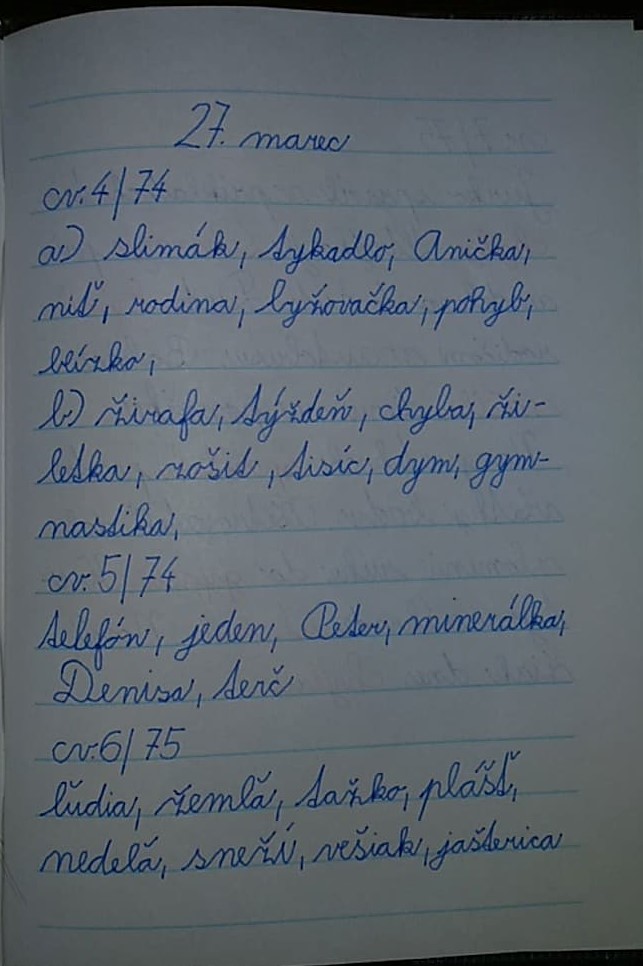 27. marec
cv. 4/74
a) slimák, tykadlo, Anička,
niť, rodina, lyžovačka, pohyb,
blízko,
b) žirafa, týždeň, chyba, ži-
letka, zošit, tisíc, dym, gym-
nastika,
cv. 5/74
telefón, jeden, Peter, minerálka,
Denisa, terč
cv. 6/75
ľudia, žemľa, ťažko, plášť,
nedeľa, sneží, vešiak, jašterica